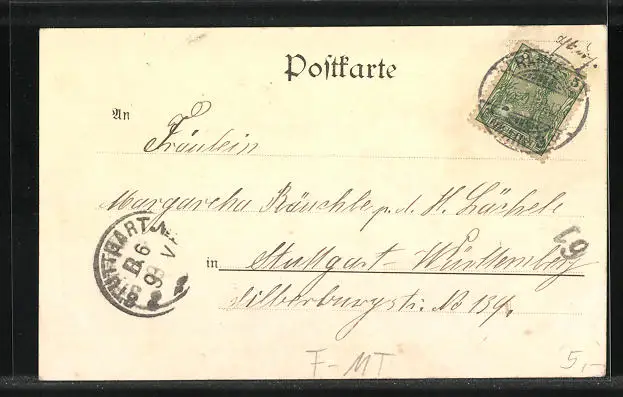 Postkarte
An
Fräulein
Margaretha Räuchle p. A. H. Läpple
in Stuttgart-Württemberg
Silberburgstr. No 139.
STUTTGART
19
F-MT
5,-